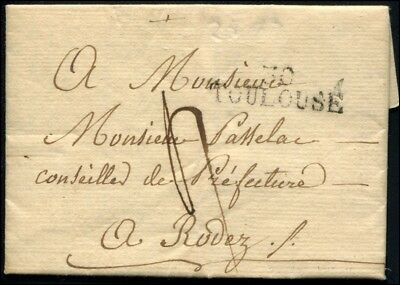 A Monsieur
30
TOULOUSE
Monsieur Passelac
conseiller de Préfecture
A Rodez